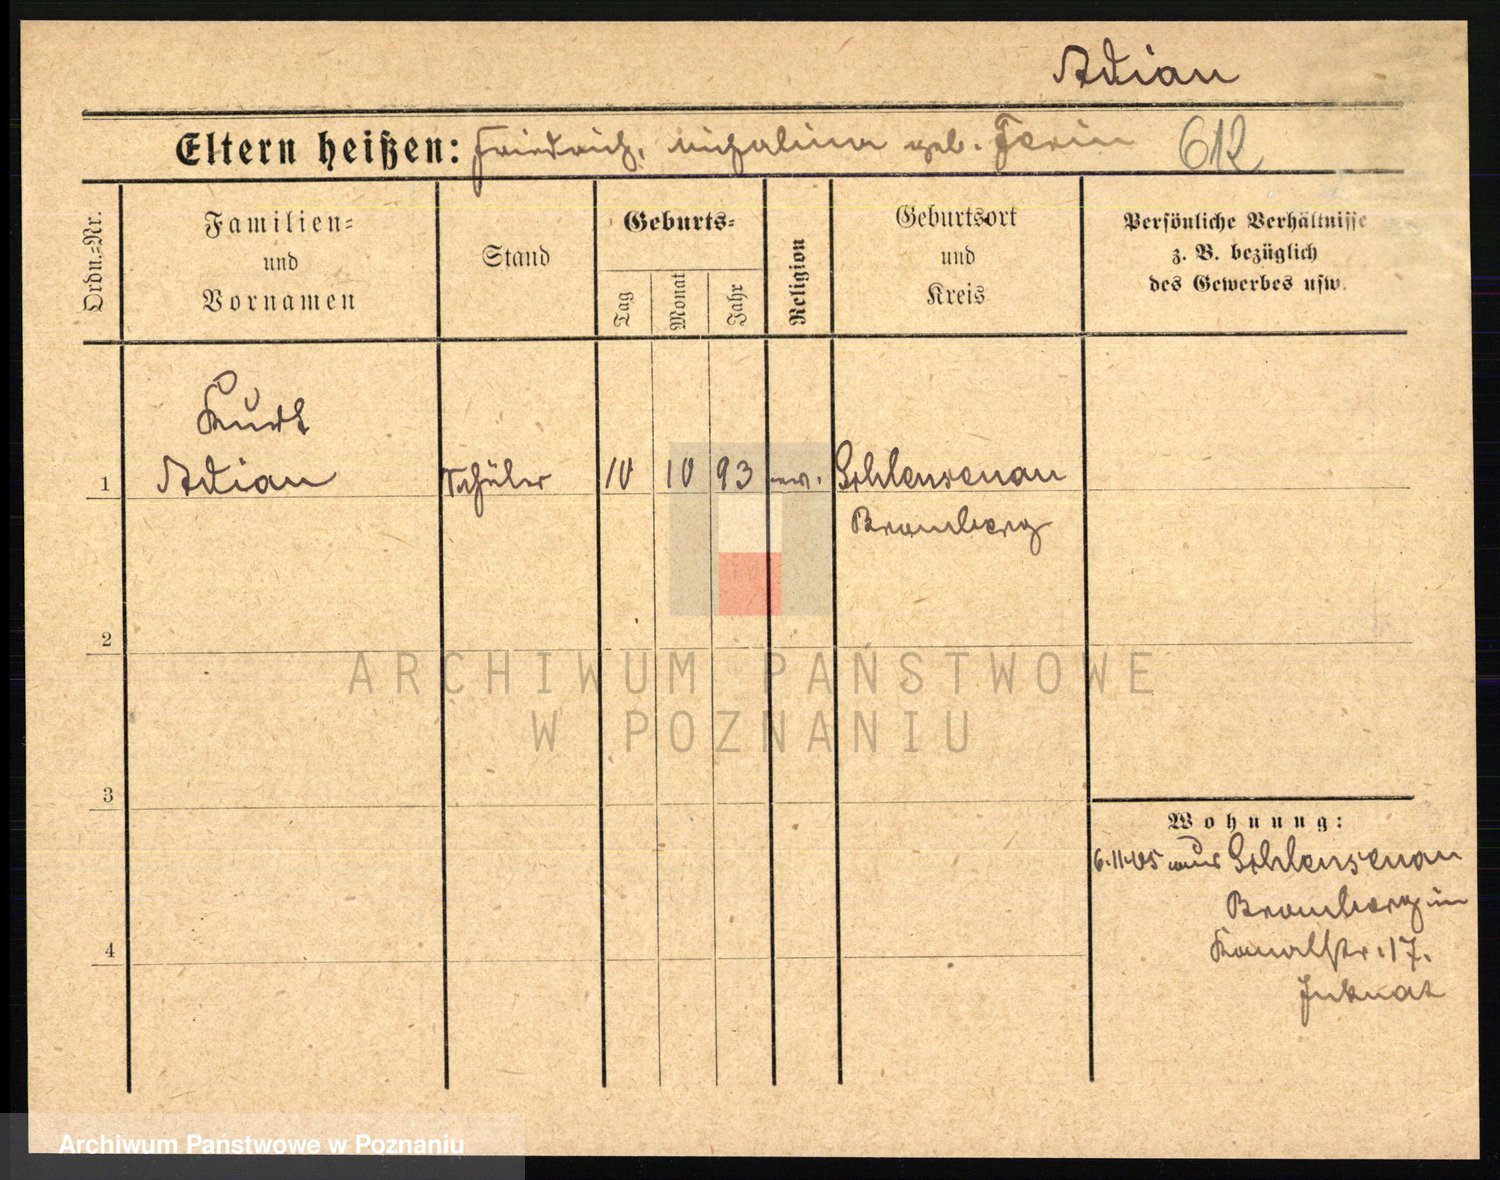 Adian
Eltern heißen: Friedrich, Michalina geb. 612
Ordn.=Nr.
Familien=
und
Vornamen
Stand
Geburts=
Tag
Monat
Jahr
Religion
Geburtsort
und
Kreis
Persönliche Verhältnisse
z. B. bezüglich
des Gewerbes usw.
Kurt
1 Adian Schüler 10 10 93 ev. Schleusenau
Bromberg
2
3
4
Wohnung:
6.11.05 aus Schleusenau
Bromberg in
Kanalstr. 17.
ARCHIWUM PAŃSTWOWE
W POZNANIU
Archiwum Państwowe w Poznaniu